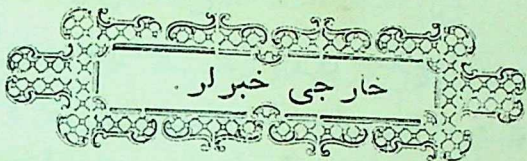 خارجی خبرلر.